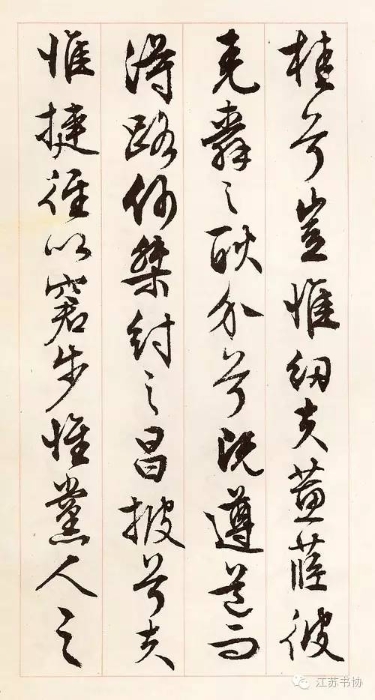 桂兮豈惟紉夫蕙茝彼
堯舜之耿介兮既遵道而
得路何桀紂之昌披兮夫
惟捷徑以窘步惟黨人之
江苏书协